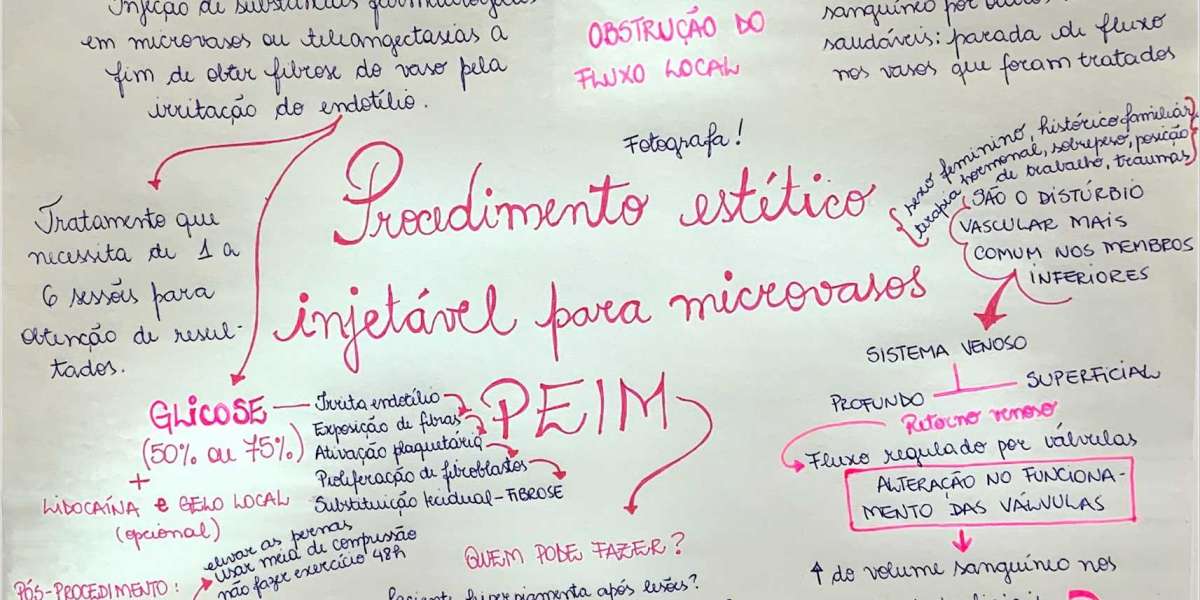 Injeção de substâncias
em microvasos ou teleangectasias a
fim de obter fibrose do vaso pela
irritação do endotélio.
OBSTRUÇÃO DO
FLUXO LOCAL
sanguíneo por
saudáveis: parada de fluxo
nos vasos que foram tratados
Fotografa!
Procedimento estético
injetável para microvasos
PEIM
Tratamento que
necessita de 1 a
6 sessões para
obtenção de resul-
tados.
GLICOSE
(50% ou 75%)
+
LIDOCAÍNA e GELO LOCAL
(opcional)
Irrita endotélio
Exposição de fibras
Ativação plaquetária
Proliferação de fibroblastos
Substituição tecidual - FIBROSE
PÓS-PROCEDIMENTO:
elevar as pernas
usar meia de compressão
não fazer exercício 48h
QUEM PODE FAZER?
Paciente hiperpigmenta após lesões?
sexo feminino, histórico familiar,
terapia hormonal, sobrepeso, posição
de trabalho, traumas
SÃO O DISTÚRBIO
VASCULAR MAIS
COMUM NOS MEMBROS
INFERIORES
SISTEMA VENOSO
PROFUNDO
SUPERFICIAL
Retorno venoso
Fluxo regulado por válvulas
ALTERAÇÃO NO FUNCIONA-
MENTO DAS VÁLVULAS
↑ do volume sanguíneo nos